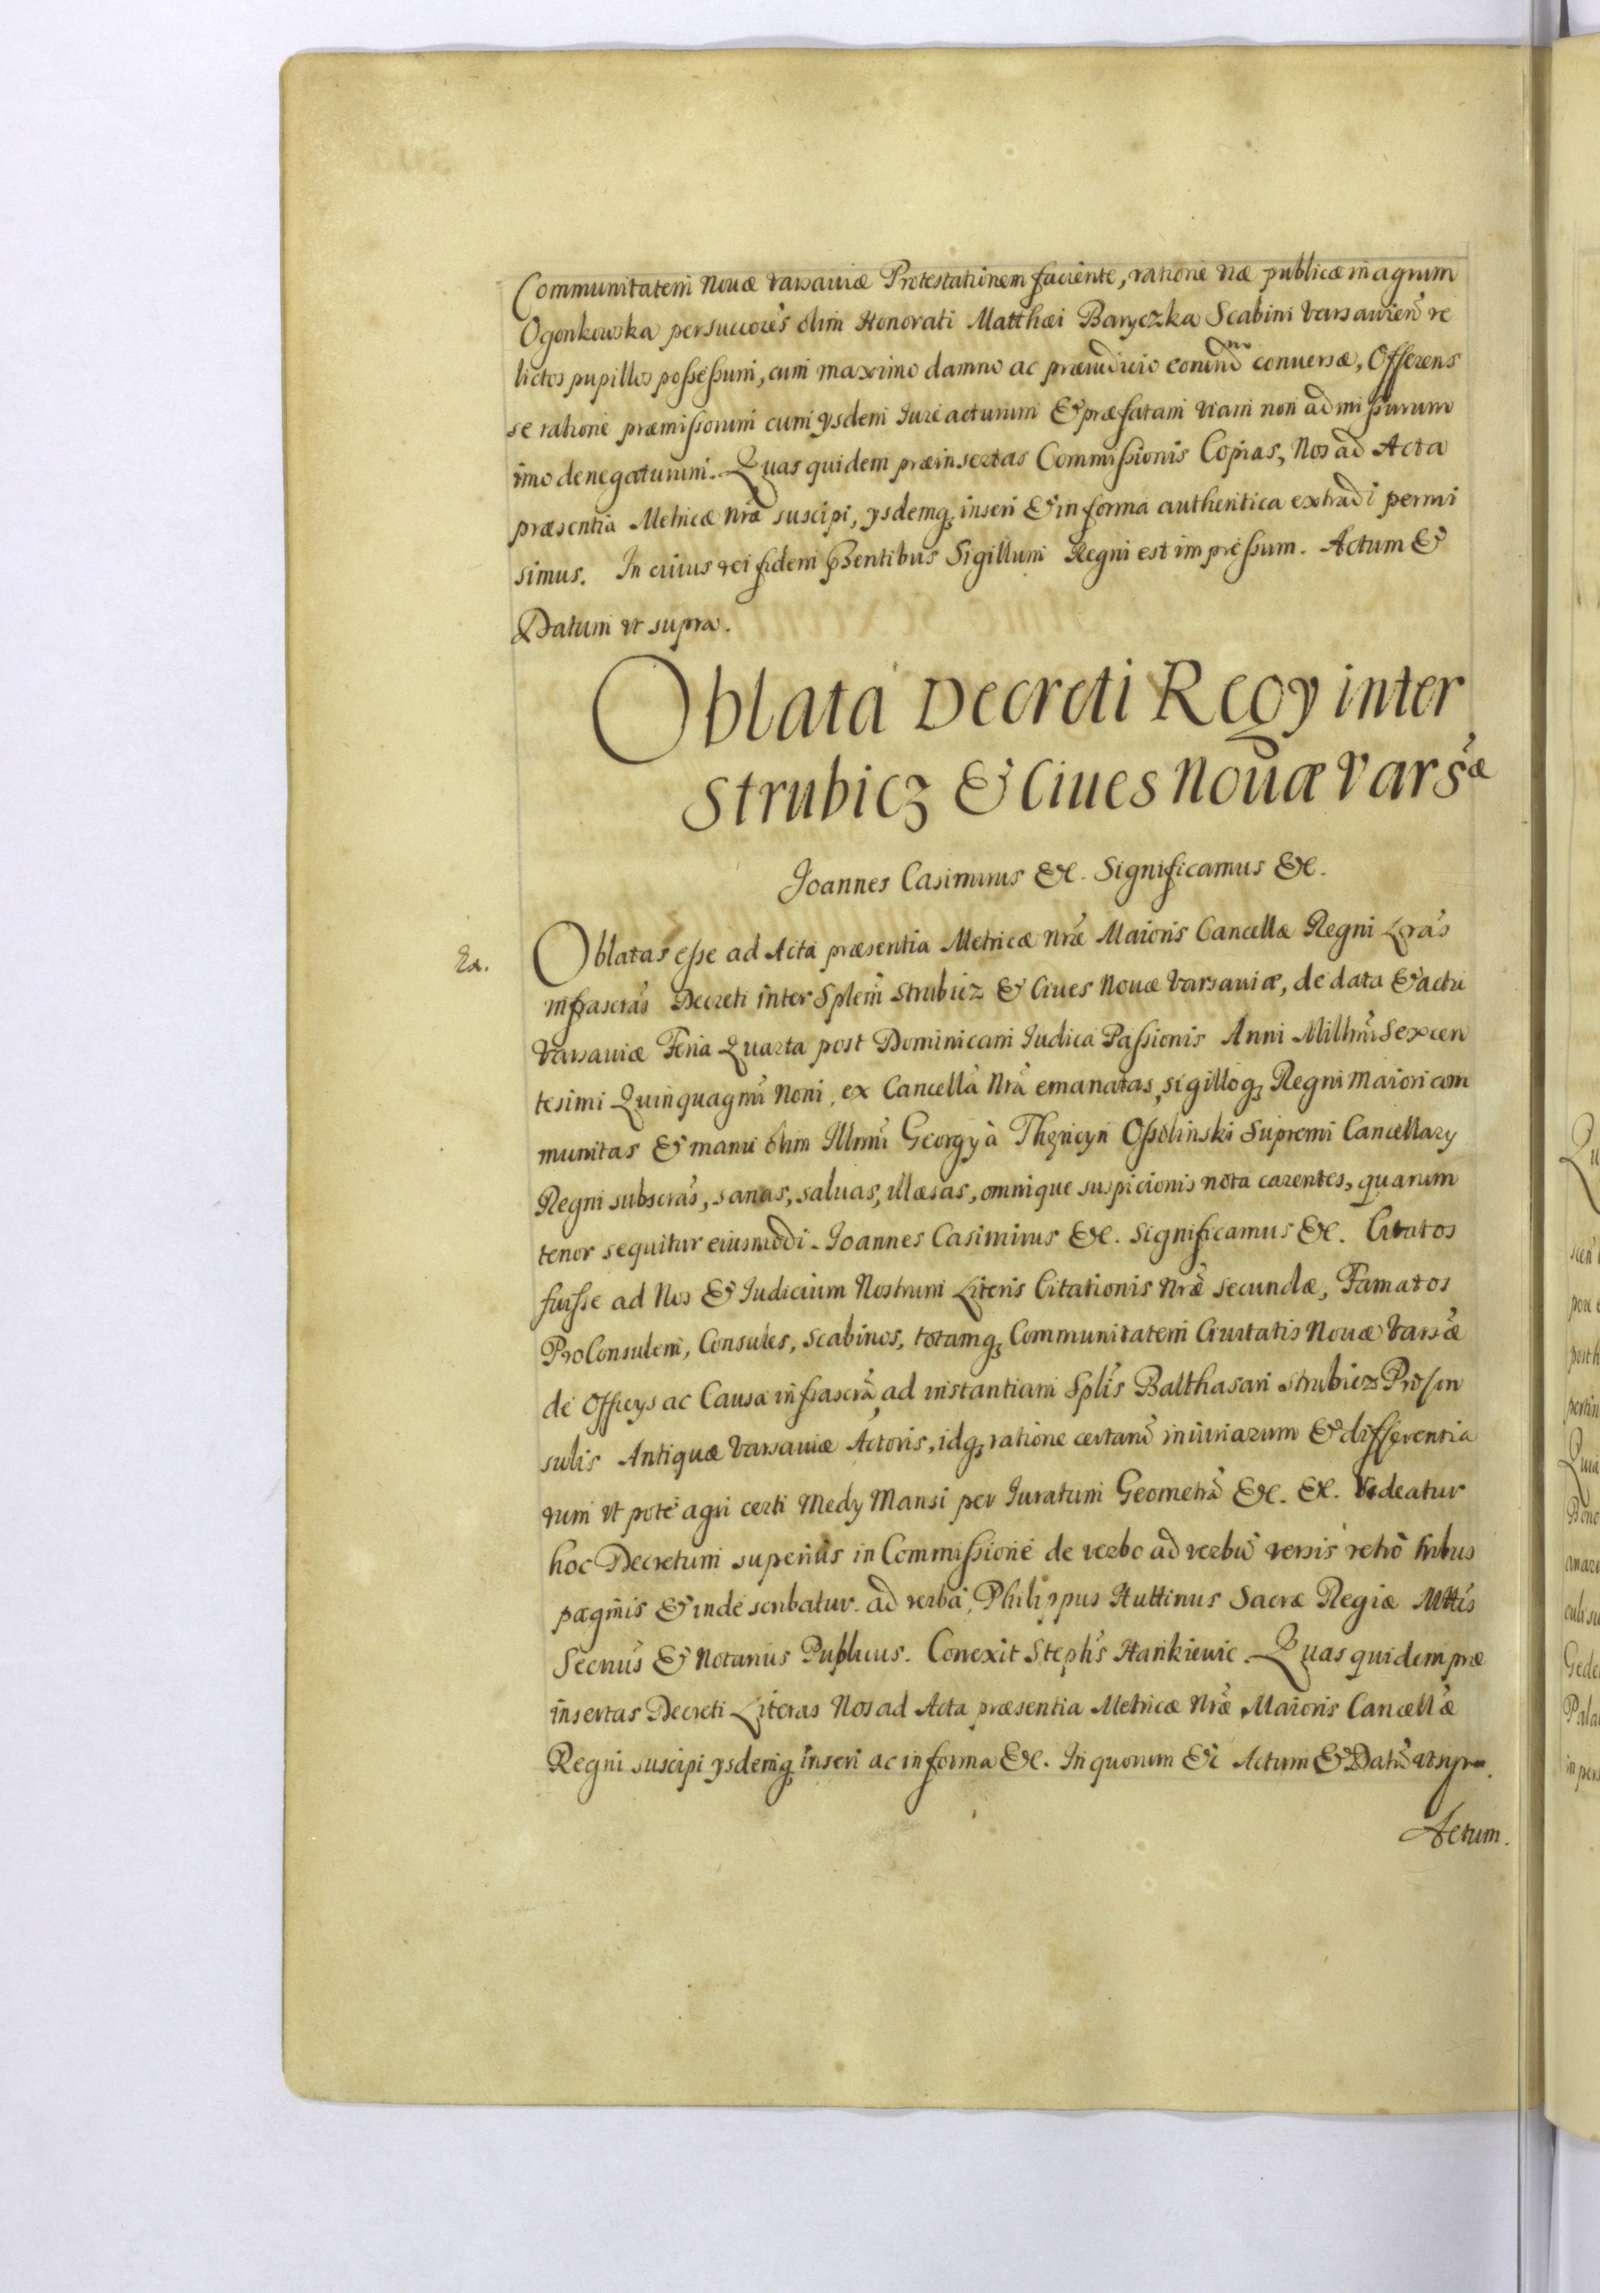 Communitatem Nouæ Varsauiæ Protestationem faciente, ratione viæ publicæ in agrum
Ogonkowska per succores olim Honorati Matthæi Baryczka Scabini Varsauien̄ re
lictos pupillos possessum, cum maximo damno ac præiudicio conuersæ, Offerens
se ratione præmissorum cum ysdem Iure acturum & præfatam viam non admissurum
imo denegaturum. Quas quidem præinsertas Commissionis Copias, Nos ad Acta
præsentia Metricæ Nræ suscipi, ysdemq; inseri & in forma authentica extradi permi
simus. In cuius rei fidem pṅtibus Sigillum Regni est impressum. Actum &
Datum vt supra.
Oblata Decreti Regy inter
Strubicz & Ciues Nouæ Varsæ
Ioannes Casimirus &c. Significamus &c.
Ex.
Oblatas esse ad Acta præsentia Metricæ Nræ Maioris Cancellæ Regni Lras
infrascras Decreti inter Splem Strubicz & Ciues Nouæ Varsauiæ, de data & actu
Varsauiæ Feria Quarta post Dominicam Iudica Passionis Anni Millmi Sexcen
tesimi Quinquagmi Noni, ex Cancella Nra emanatas, sigilloq; Regni Maiori com
munitas & manu olim Illmi Georgy à Thęncyn Ossolinski Supremi Cancellary
Regni subscras, sanas, saluas, illæsas, omnique suspicionis nota carentes, quarum
tenor sequitur eiusmodi. Ioannes Casimirus &c. Significamus &c. Citatos
fuisse ad Nos & Iudicium Nostrum Literis Citationis Nræ secundæ, Famatos
ProConsulem, Consules, Scabinos, totamq; Communitatem Ciuitatis Nouæ Varsæ
de Officys ac Causa infrascra, ad instantiam Splis Balthasari Strubicz ProCon
sulis Antiquæ Varsauiæ Actoris, idq; ratione certarū iniuriarum & differentia
rum vt pote agri certi Medy Mansi per Iuratum Geometrā &c. &c. Videatur
hoc Decretum superius in Commissione de verbo ad verbū versis retro tribus
paginis & inde scribatur ad verba, Philippus Huttinus Sacræ Regiæ Mttis
Secrius & Notarius Publicus. Conexit Stephs Hankiewic. Quas quidem præ
insertas Decreti Literas Nos ad Acta præsentia Metricæ Nræ Maioris Cancellæ
Regni suscipi ysdemq; inseri ac in forma &c. In quorum &c Actum & Datū vt supra.
Actum.